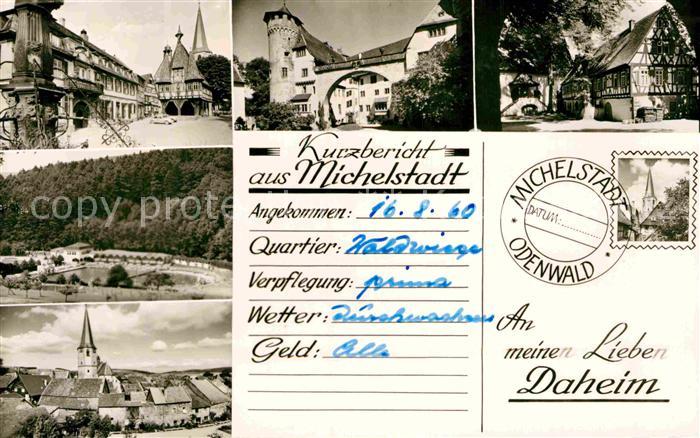 Kurzbericht
aus Michelstadt
Angekommen: 16. 8. 60
Quartier: Waldwiege
Verpflegung: prima
Wetter: Durchwachsen
Geld: Alle
MICHELSTADT
DATUM:
ODENWALD
An
meinen Lieben
Daheim